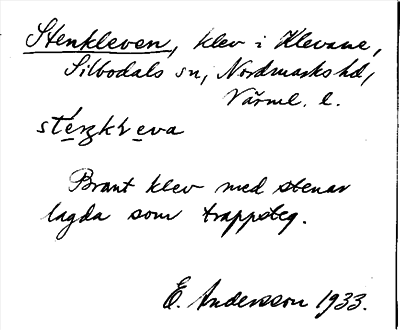 Stenkleven, klev i Klevane,
Silbodals sn, Nordmarks hd,
Värml. l.

Brant klev med stenar
lagda som trappsteg.
E. Andersson 1933.